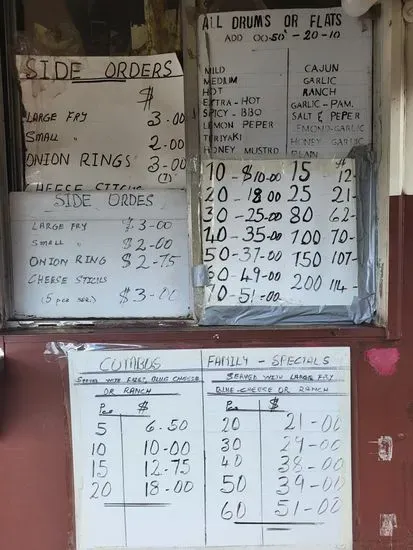 SIDE ORDERS
$
LARGE FRY 3.00
SMALL " 2.00
ONION RINGS 3.00
(7)
CHEESE STICKS
SIDE ORDES
LARGE FRY $3-00
SMALL " $2-00
ONION RING $2-75
CHEESE STICKS
(5 pce ser.) $3-00
ALL DRUMS OR FLATS
ADD 00.50¢ - 20-10
MILD CAJUN
MEDIUM GARLIC
HOT RANCH
EXTRA-HOT GARLIC-PAM.
SPICY-BBQ SALT & PEPER
LEMON PEPER LEMOND-GARLIC
TERIYAKI HONEY GARLIC
HONEY MUSTRD PLAIN
10-$10.00 15 12-
20-18.00 25 21-
30-25-00 80 62-
40-35-00 100 70-
50-37-00 150 107-
60-49-00 200 114-
70-51-00
COMBOS
SERVED WITH FRIES, BLUE CHEESE
OR RANCH
Pce $
5 6.50
10 10-00
15 12-75
20 18-00
FAMILY - SPECIALS
SERVED WITH LARGE FRY
BLUE-CHEESE OR RANCH
Pce $
20 21-00
30 29-00
40 38-00
50 39-00
60 51-00